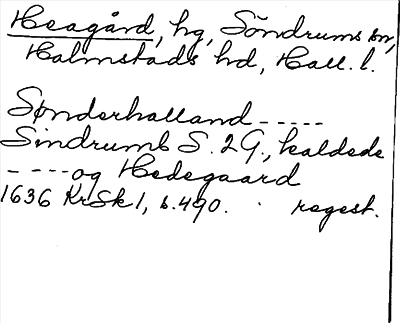 Heagård, hg, Söndrums sn,
Halmstads hd, Hall. l.
Sønderhalland -----
Sindrumb S. 2 G., kaldede
---- og Hedegaard
1636 KrSk 1, s. 490. regest.